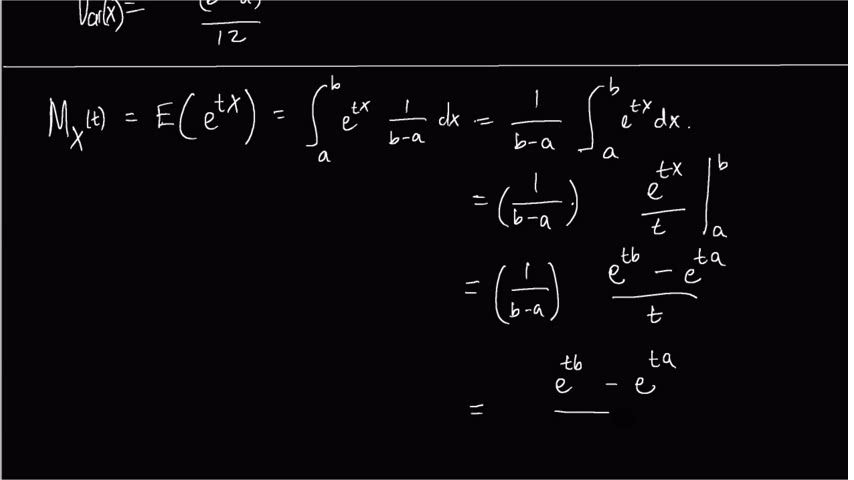 Var(X) = (b-a) / 12
M_X(t) = E(e^{tX}) = ∫_a^b e^{tx} 1/(b-a) dx = 1/(b-a) ∫_a^b e^{tx} dx.
= (1/(b-a)) · e^{tx}/t |_a^b
= (1/(b-a)) (e^{tb} - e^{ta})/t
= e^{tb} - e^{ta}